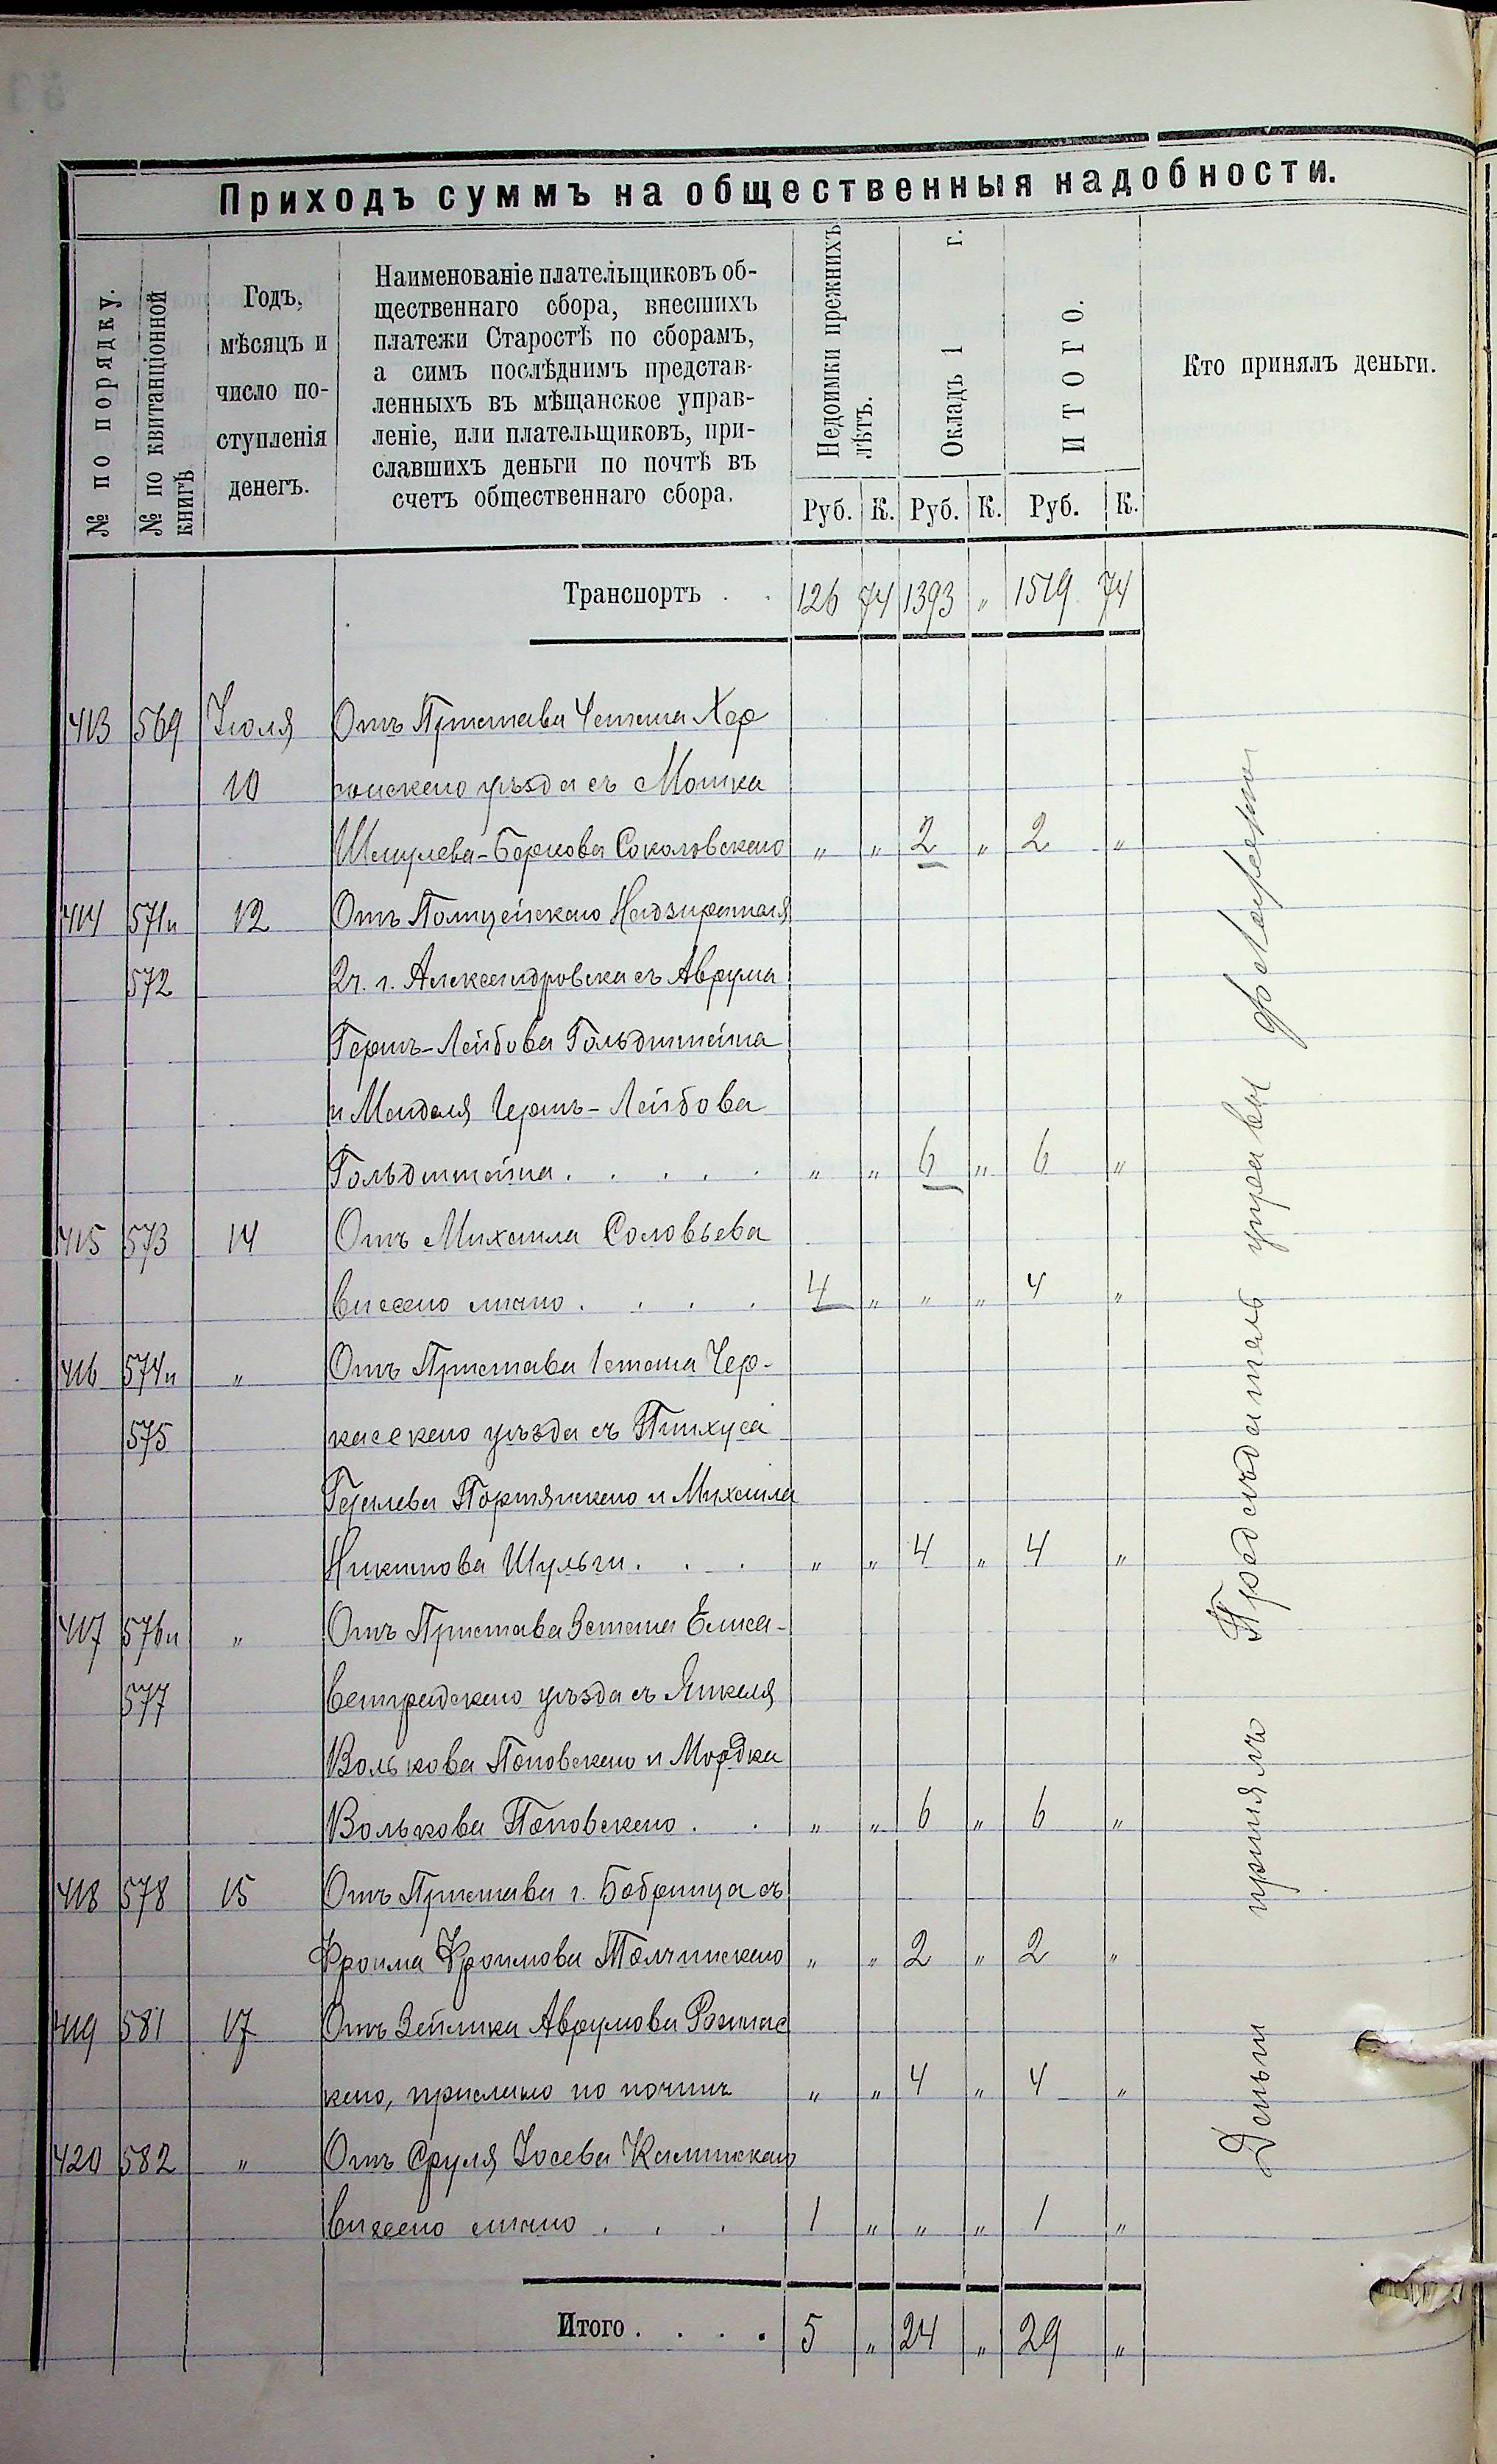 Приходъ суммъ на общественныя надобности.
№ по порядку.
№ по квитанціонной книгѣ
Годъ,
мѣсяцъ и
число по-
ступленія
денегъ.
Наименованіе плательщиковъ об-
щественнаго сбора, внесшихъ
платежи Старостѣ по сборамъ,
а симъ послѣднимъ представ-
ленныхъ въ мѣщанское управ-
леніе, или плательщиковъ, при-
славшихъ деньги по почтѣ въ
счетъ общественнаго сбора.
Недоимки прежнихъ лѣтъ.
Окладъ 1 г.
ИТОГО.
Кто принялъ деньги.
Руб. К. Руб. К. Руб. К.
Транспортъ . . 126 74 1393 „ 1519 74
413 569 Іюля Отъ Пристава 4 стана Хер
10 сонскаго уѣзда съ Мошка
Шмулева-Беркова Соколовскаго „ „ 2 „ 2 „
414 571 и 12 Отъ Полицейскаго Надзирателя
572 2 ч. г. Александровска съ Аврума
Гершъ-Лейбова Гольдштейна
и Менделя Гершъ-Лейбова
Гольдштейна . . . . . „ „ 6 „ 6 „
415 573 14 Отъ Михаила Соловьева
внесено лично . . . . 4 „ „ „ 4 „
416 574 и „ Отъ Пристава 1 стана Чер-
575 касскаго уѣзда съ Пинхуса
Гецелева Портянскаго и Михаила
Никитова Шульги . . . „ „ 4 „ 4 „
417 576 и „ Отъ Пристава 3 стана Елиса-
577 ветградскаго уѣзда съ Янкеля
Волькова Поповскаго и Мордка
Волькова Поповскаго . . „ „ 6 „ 6 „
418 578 15 Отъ Пристава г. Бобринца съ
Фроима Фроимова Толчинскаго „ „ 2 „ 2 „
419 581 17 Отъ Зейлика Аврумова
скаго, прислано по почтѣ „ „ 4 „ 4 „
420 582 „ Отъ Сруля Іосева Калинскаго
внесено лично . . . 1 „ „ „ 1 „
Итого . . . . 5 „ 24 „ 29 „
Деньги принялъ Предсѣдатель управы